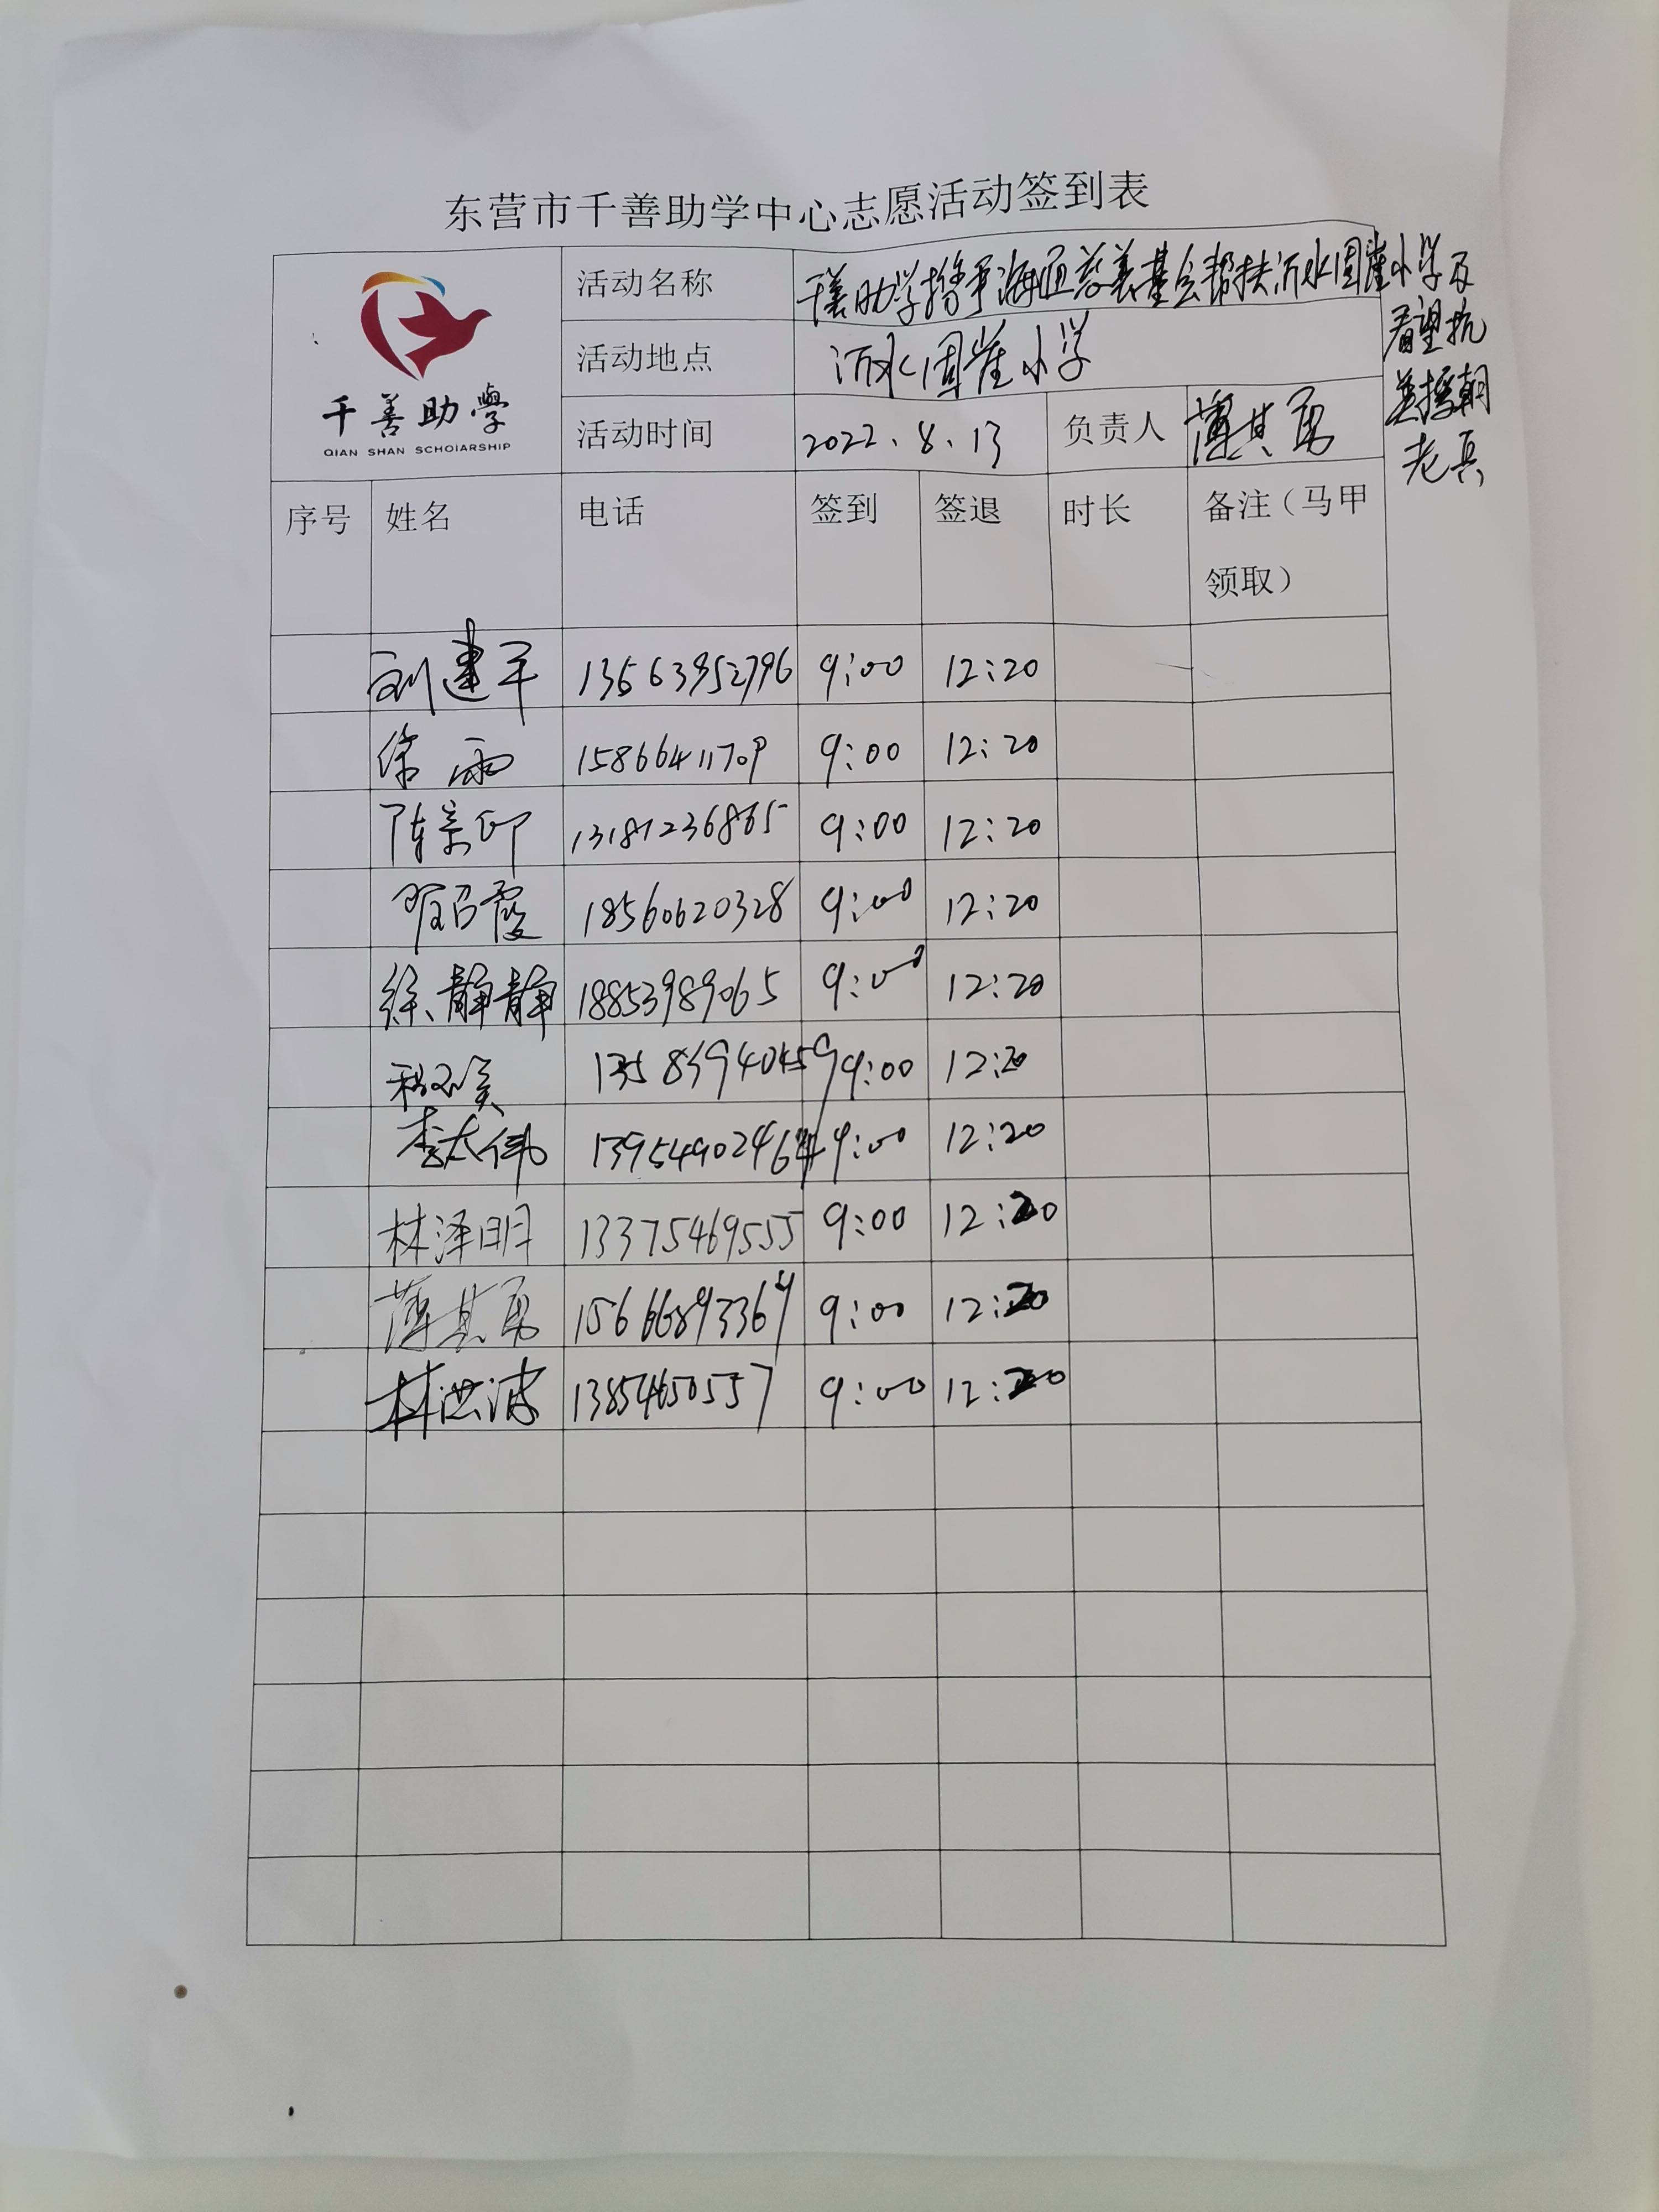 东营市千善助学中心志愿活动签到表
千善助學
QIAN SHAN SCHOIARSHIP
活动名称 千善助学携手海通慈善基金会帮扶沂水圈崖小学及
看望抗
美援朝
老兵
活动地点 沂水圈崖小学
活动时间 2022.8.13 负责人 薄其勇
序号 姓名 电话 签到 签退 时长 备注（马甲
领取）
刘建平 13563952796 9:00 12:20
徐雨 15866411709 9:00 12:20
陈景印 13181236865 9:00 12:20
召霞 18560620328 9:00 12:20
徐静静 18853989065 9:00 12:20
9:00 12:20
李太伟 9:00 12:20
林泽明 13375469555 9:00 12:20
薄其勇 9:00 12:20
林洪波 13854650557 9:00 12:20